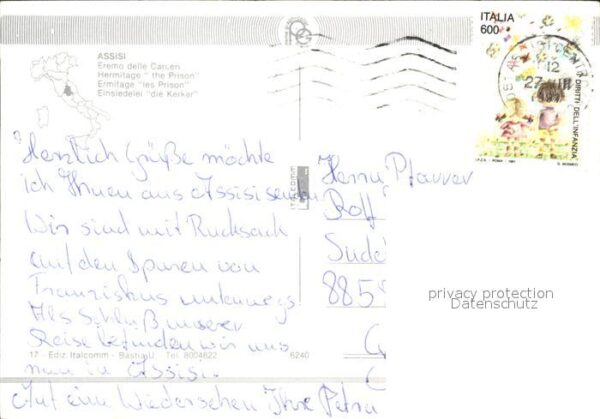 ASSISI
Eremo delle Carceri
Hermitage "the Prison"
Ermitage "les Prison"
Einsiedelei "die Kerker"
ITALIA
600
DIRITTI DELL'INFANZIA
12
Herzlich Grüße möchte
ich Ihnen aus Assisi senden
Wir sind mit Rucksack
auf den Spuren von
Franziskus unterwegs
Als Schluß unserer
Reise befinden wir uns
nun in Assisi.
Auf eine Wiedersehen Ihre Petra
Herrn Pfarrer
Rolf
Sude
885
privacy protection
Datenschutz
italcomm
17 - Ediz. Italcomm - Bastia U. Tel. 8004622
6240